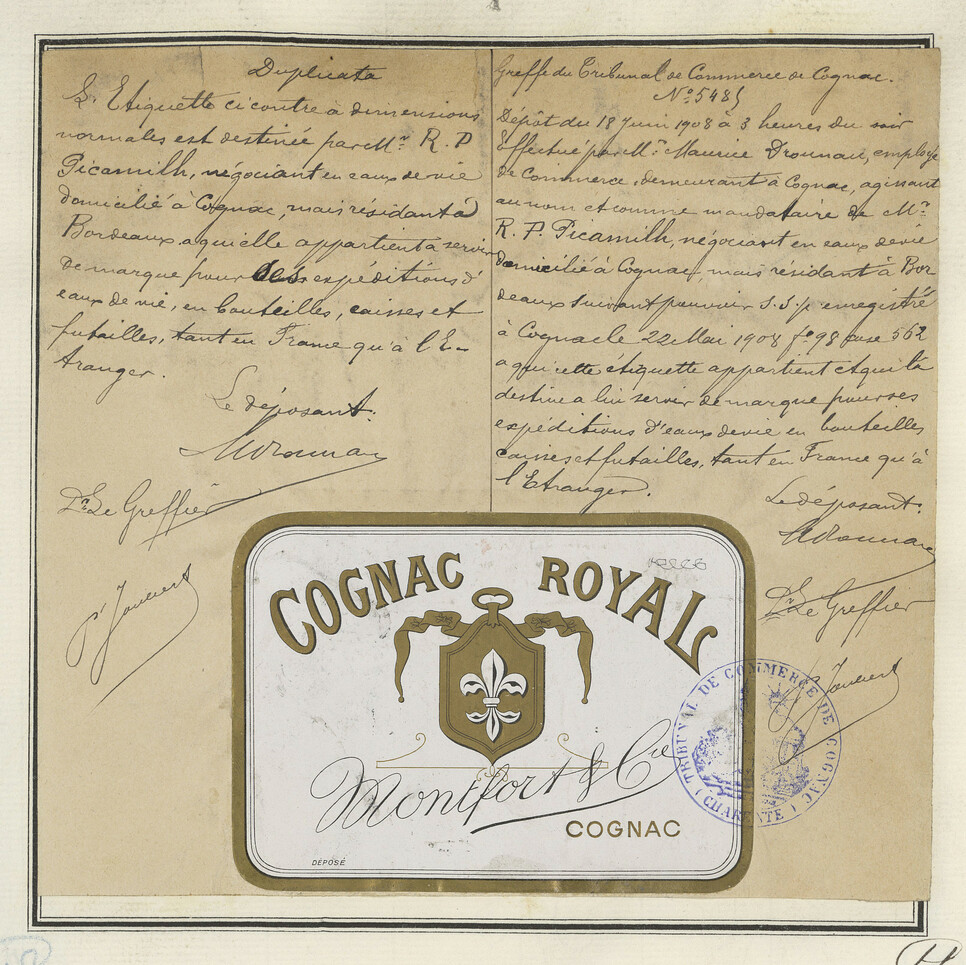 Duplicata
L'Etiquette ci contre à dimensions
normales est destinée par Mr. R. P
Picamilh, négociant en eaux de vie
domicilié à Cognac, mais résidant à
Bordeaux a qui elle appartient à servir
de marque pour ses expéditions d'
eaux de vie, en bouteilles, caisses et
futailles, tant en France qu'à l'E-
tranger.
Le déposant.
MDrounau
Le Greffier
Joubert
Greffe du Tribunal de Commerce de Cognac.
No 5485
Dépôt du 18 Juin 1908 à 3 heures du soir
Effectué par Mr. Maurice Drounau, employé
de Commerce, demeurant à Cognac, agissant
au nom et comme mandataire de Mr
R. P. Picamilh, négociant en eaux de vie
domicilié à Cognac, mais résidant à Bor
deaux suivant pouvoir S.S.p. enregistré
à Cognac le 22 Mai 1908 fo 98 case 562
a qui cette étiquette appartient et qui la
destine a lui servir de marque pour ses
expéditions d'eaux de vie en bouteilles
caisses et futailles, tant en France qu'à
l'Etranger.
Le déposant.
MDrounau
Le Greffier
Joubert
COGNAC ROYAL
Montfort & Cie
COGNAC
DÉPOSÉ
TRIBUNAL DE COMMERCE DE COGNAC
(CHARENTE)